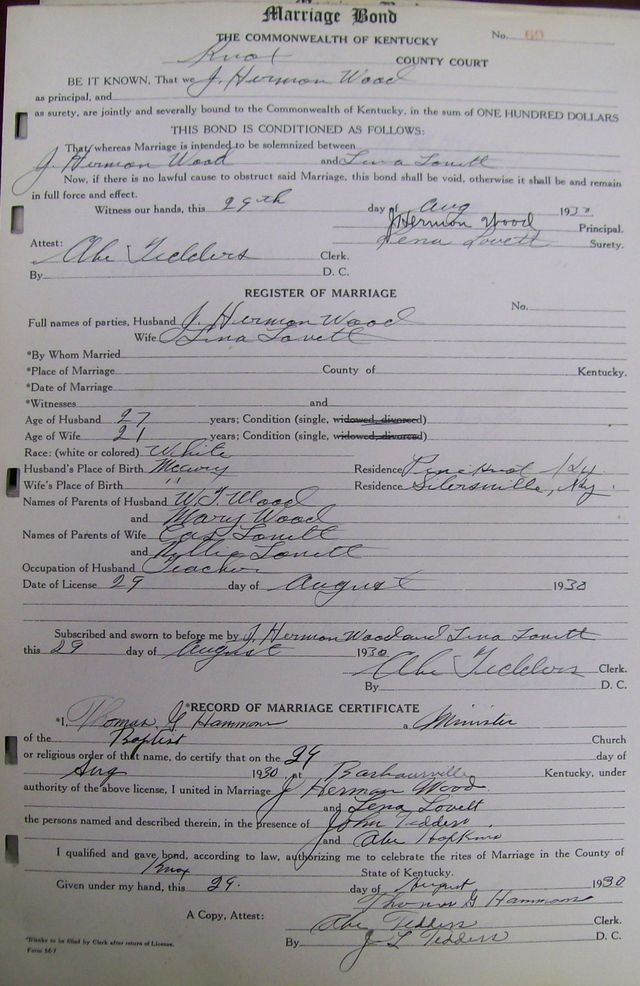 Marriage Bond
THE COMMONWEALTH OF KENTUCKY No. 69
Knox COUNTY COURT
BE IT KNOWN, That we J. Hermon Wood
as principal, and
as surety, are jointly and severally bound to the Commonwealth of Kentucky, in the sum of ONE HUNDRED DOLLARS
THIS BOND IS CONDITIONED AS FOLLOWS:
That whereas Marriage is intended to be solemnized between
J. Hermon Wood and Lina Lovett
Now, if there is no lawful cause to obstruct said Marriage, this bond shall be void, otherwise it shall be and remain
in full force and effect.
Witness our hands, this 29th day of Aug 1930
J Hermon Wood Principal.
Attest: Lena Lovett Surety.
Abe Tedders Clerk.
By D. C.
REGISTER OF MARRIAGE
No.
Full names of parties, Husband J. Hermon Wood
Wife Lina Lovett
*By Whom Married
*Place of Marriage County of Kentucky.
*Date of Marriage
*Witnesses and
Age of Husband 27 years; Condition (single, widowed, divorced)
Age of Wife 21 years; Condition (single, widowed, divorced)
Race: (white or colored) White
Husband's Place of Birth Mccury Residence Pine Knot Ky
Wife's Place of Birth " Residence Silersville, Ky.
Names of Parents of Husband W. T. Wood
and Mary Wood
Names of Parents of Wife Cas Lovett
and Lovett
Occupation of Husband Teacher
Date of License 29 day of August 1930
Subscribed and sworn to before me by J. Hermon Wood and Lina Lovett
this 29 day of August 1930
Abe Tedders Clerk.
By D. C.
*RECORD OF MARRIAGE CERTIFICATE
*I, Thomas G Hammons a Minister
of the Baptist Church
or religious order of that name, do certify that on the 29 day of
Aug 1930, at Barbourville Kentucky, under
authority of the above license, I united in Marriage J Herman Wood
and Lena Lovett
the persons named and described therein, in the presence of John Tedders
and Abe Hopkins
I qualified and gave bond, according to law, authorizing me to celebrate the rites of Marriage in the County of
Knox State of Kentucky.
Given under my hand, this 29. day of August 1930
Thomas G Hammons
A Copy, Attest: Abe Tedders Clerk.
By J L Tedders D. C.
*Blanks to be filled by Clerk after return of License.
Form 56-7